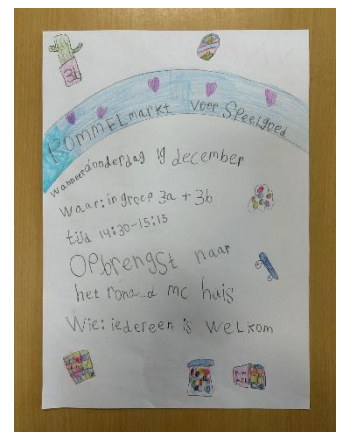 3b
Rommelmarkt voor Speelgoed
wanneer: donderdag 19 december
waar: in groep 3a + 3b
tijd 14:30-15:15
Opbrengst naar
het ronald mc huis
Wie: iedereen is welkom